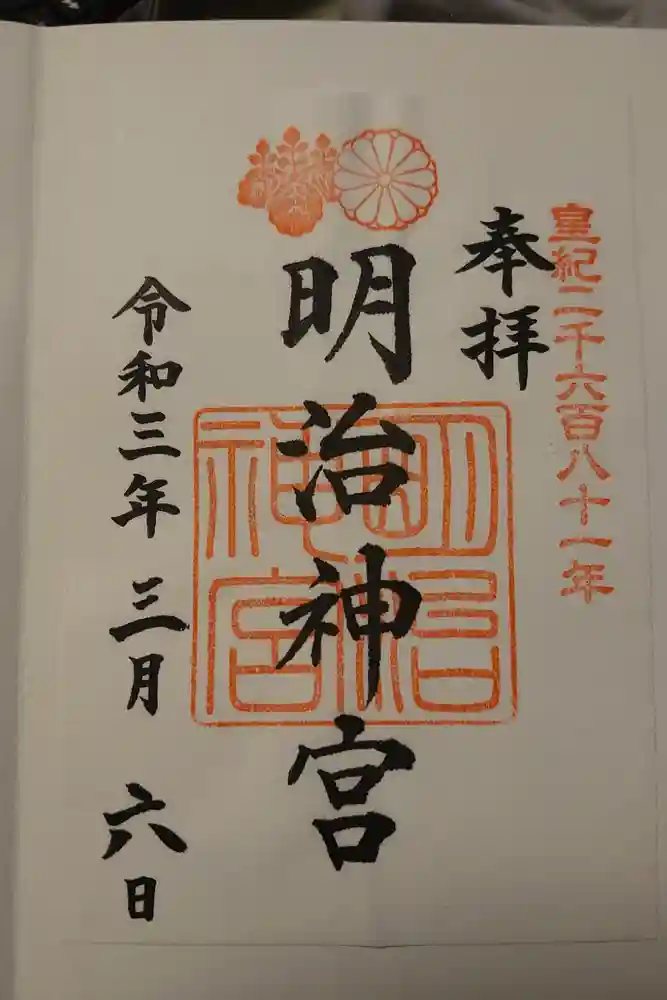 皇紀二千六百八十一年
奉拝
明治神宮
明治神宮
令和三年 三月 六日